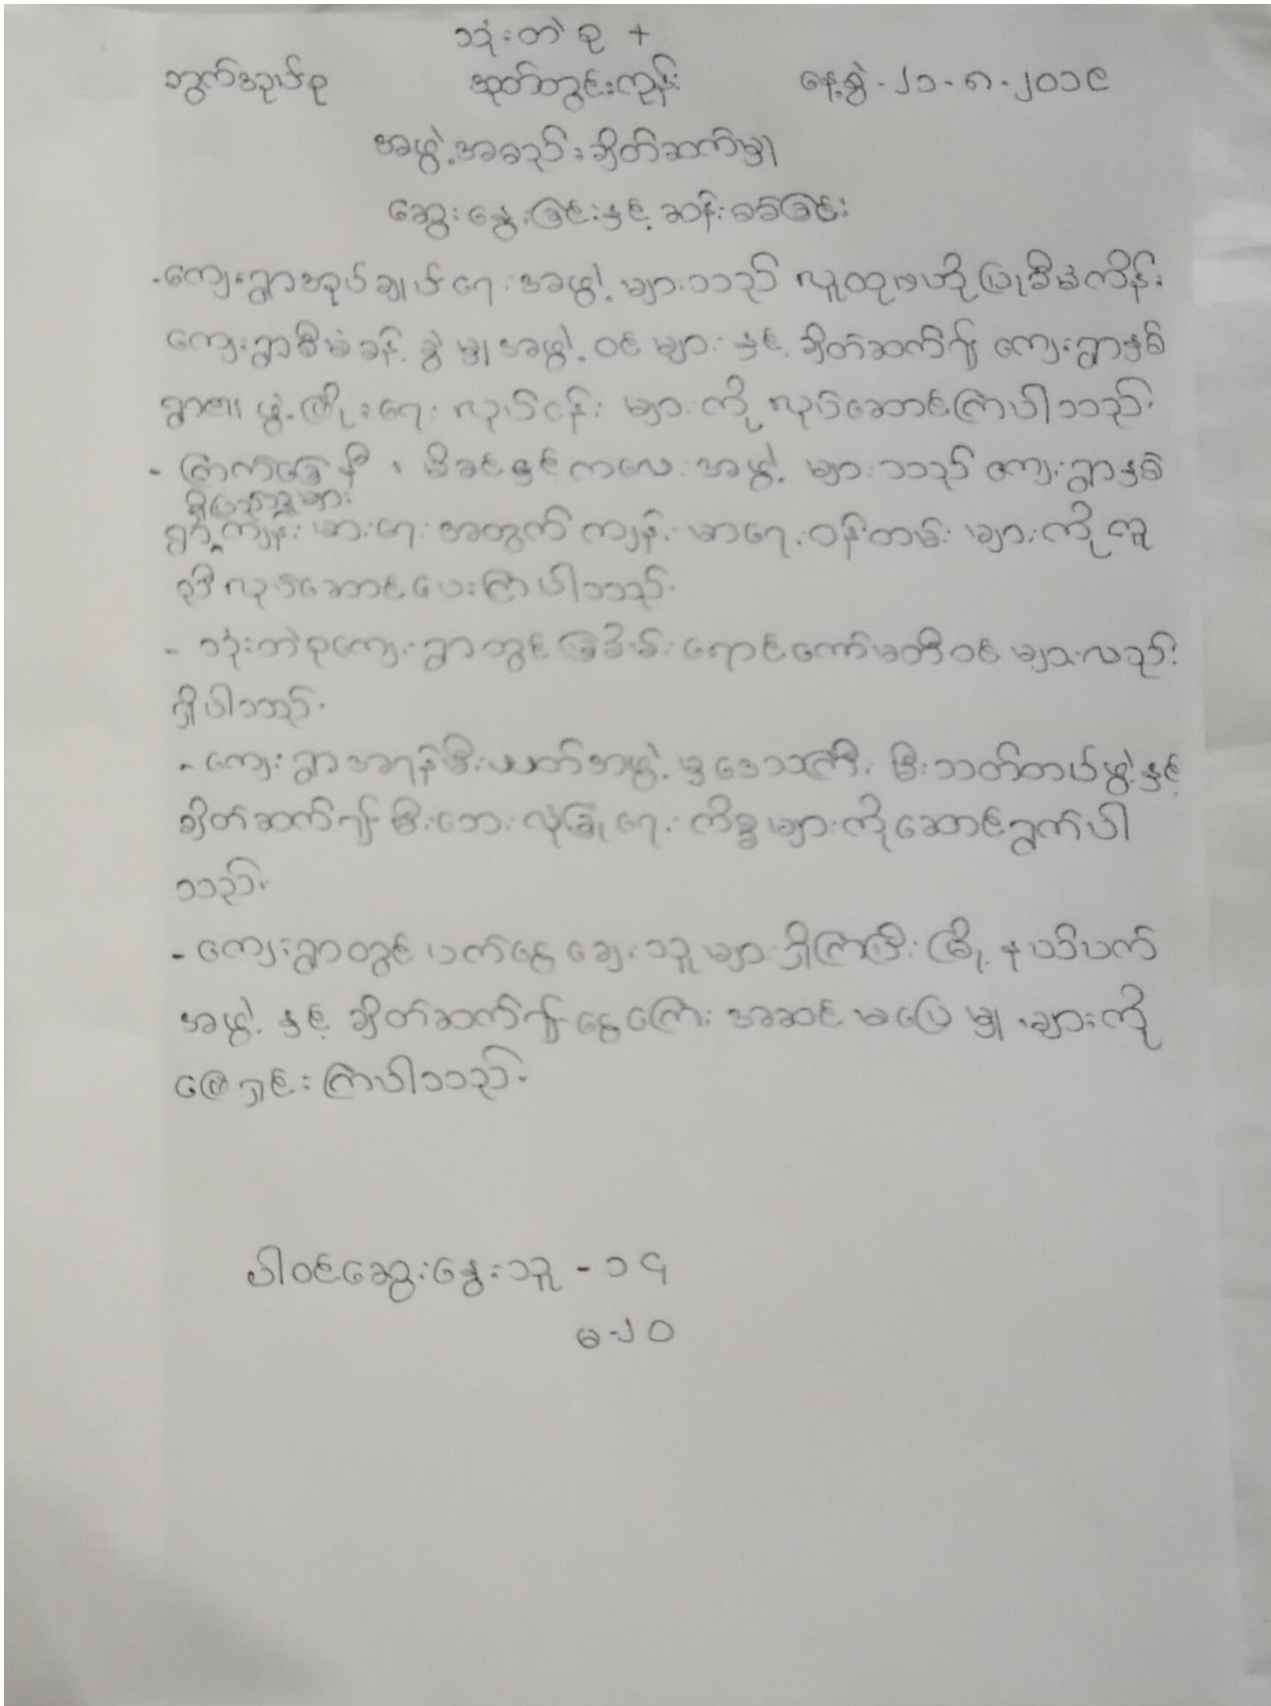 သုံးတဲစု +
ဘွက်ဒညပ်စု အုတ်တွင်းကုန်း နေ့စွဲ - ၂၁-၈-၂၀၁၉
အဖွဲ့အစည်းချိတ်ဆက်မှု
ဆွေးနွေးခြင်းနှင့် ဆန်းစစ်ခြင်း
- ကျေးရွာအုပ်ချုပ်ရေးအဖွဲ့များသည် လူထုဗဟိုပြုစီမံကိန်း
ကျေးရွာစီမံခန့်ခွဲမှုအဖွဲ့ဝင်များနှင့် ချိတ်ဆက်၍ ကျေးရွာနှစ်
ရွာ၏ ဖွံ့ဖြိုးရေးလုပ်ငန်းများကို လုပ်ဆောင်ကြပါသည်။
- ကြက်ခြေနီ၊ မိခင်နှင့်ကလေးအဖွဲ့များသည် ကျေးရွာနှစ်
ရှိသူများ
ရွာ ကျန်းမာရေးအတွက် ကျန်းမာရေးဝန်ထမ်းများကို ကူ
ညီလုပ်ဆောင်ပေးကြပါသည်။
- သုံးတဲစုကျေးရွာတွင် မြစိမ်းရောင်ကော်မတီဝင်များလည်း
ရှိပါသည်။
- ကျေးရွာအရန်မီးသတ်အဖွဲ့မှ ဒေသကြီးမီးသတ်တပ်ဖွဲ့နှင့်
ချိတ်ဆက်၍ မီးဘေးလုံခြုံရေးကိစ္စများကို ဆောင်ရွက်ပါ
သည်။
- ကျေးရွာတွင် ပက်ငွေချေးသူများရှိကြပြီး မြို့နယ်ပက်
အဖွဲ့နှင့် ချိတ်ဆက်၍ ငွေကြေးအဆင်မပြေမှုများကို
ဖြေရှင်းကြပါသည်။
ပါဝင်ဆွေးနွေးသူ - ၁၄
မ-၂၀